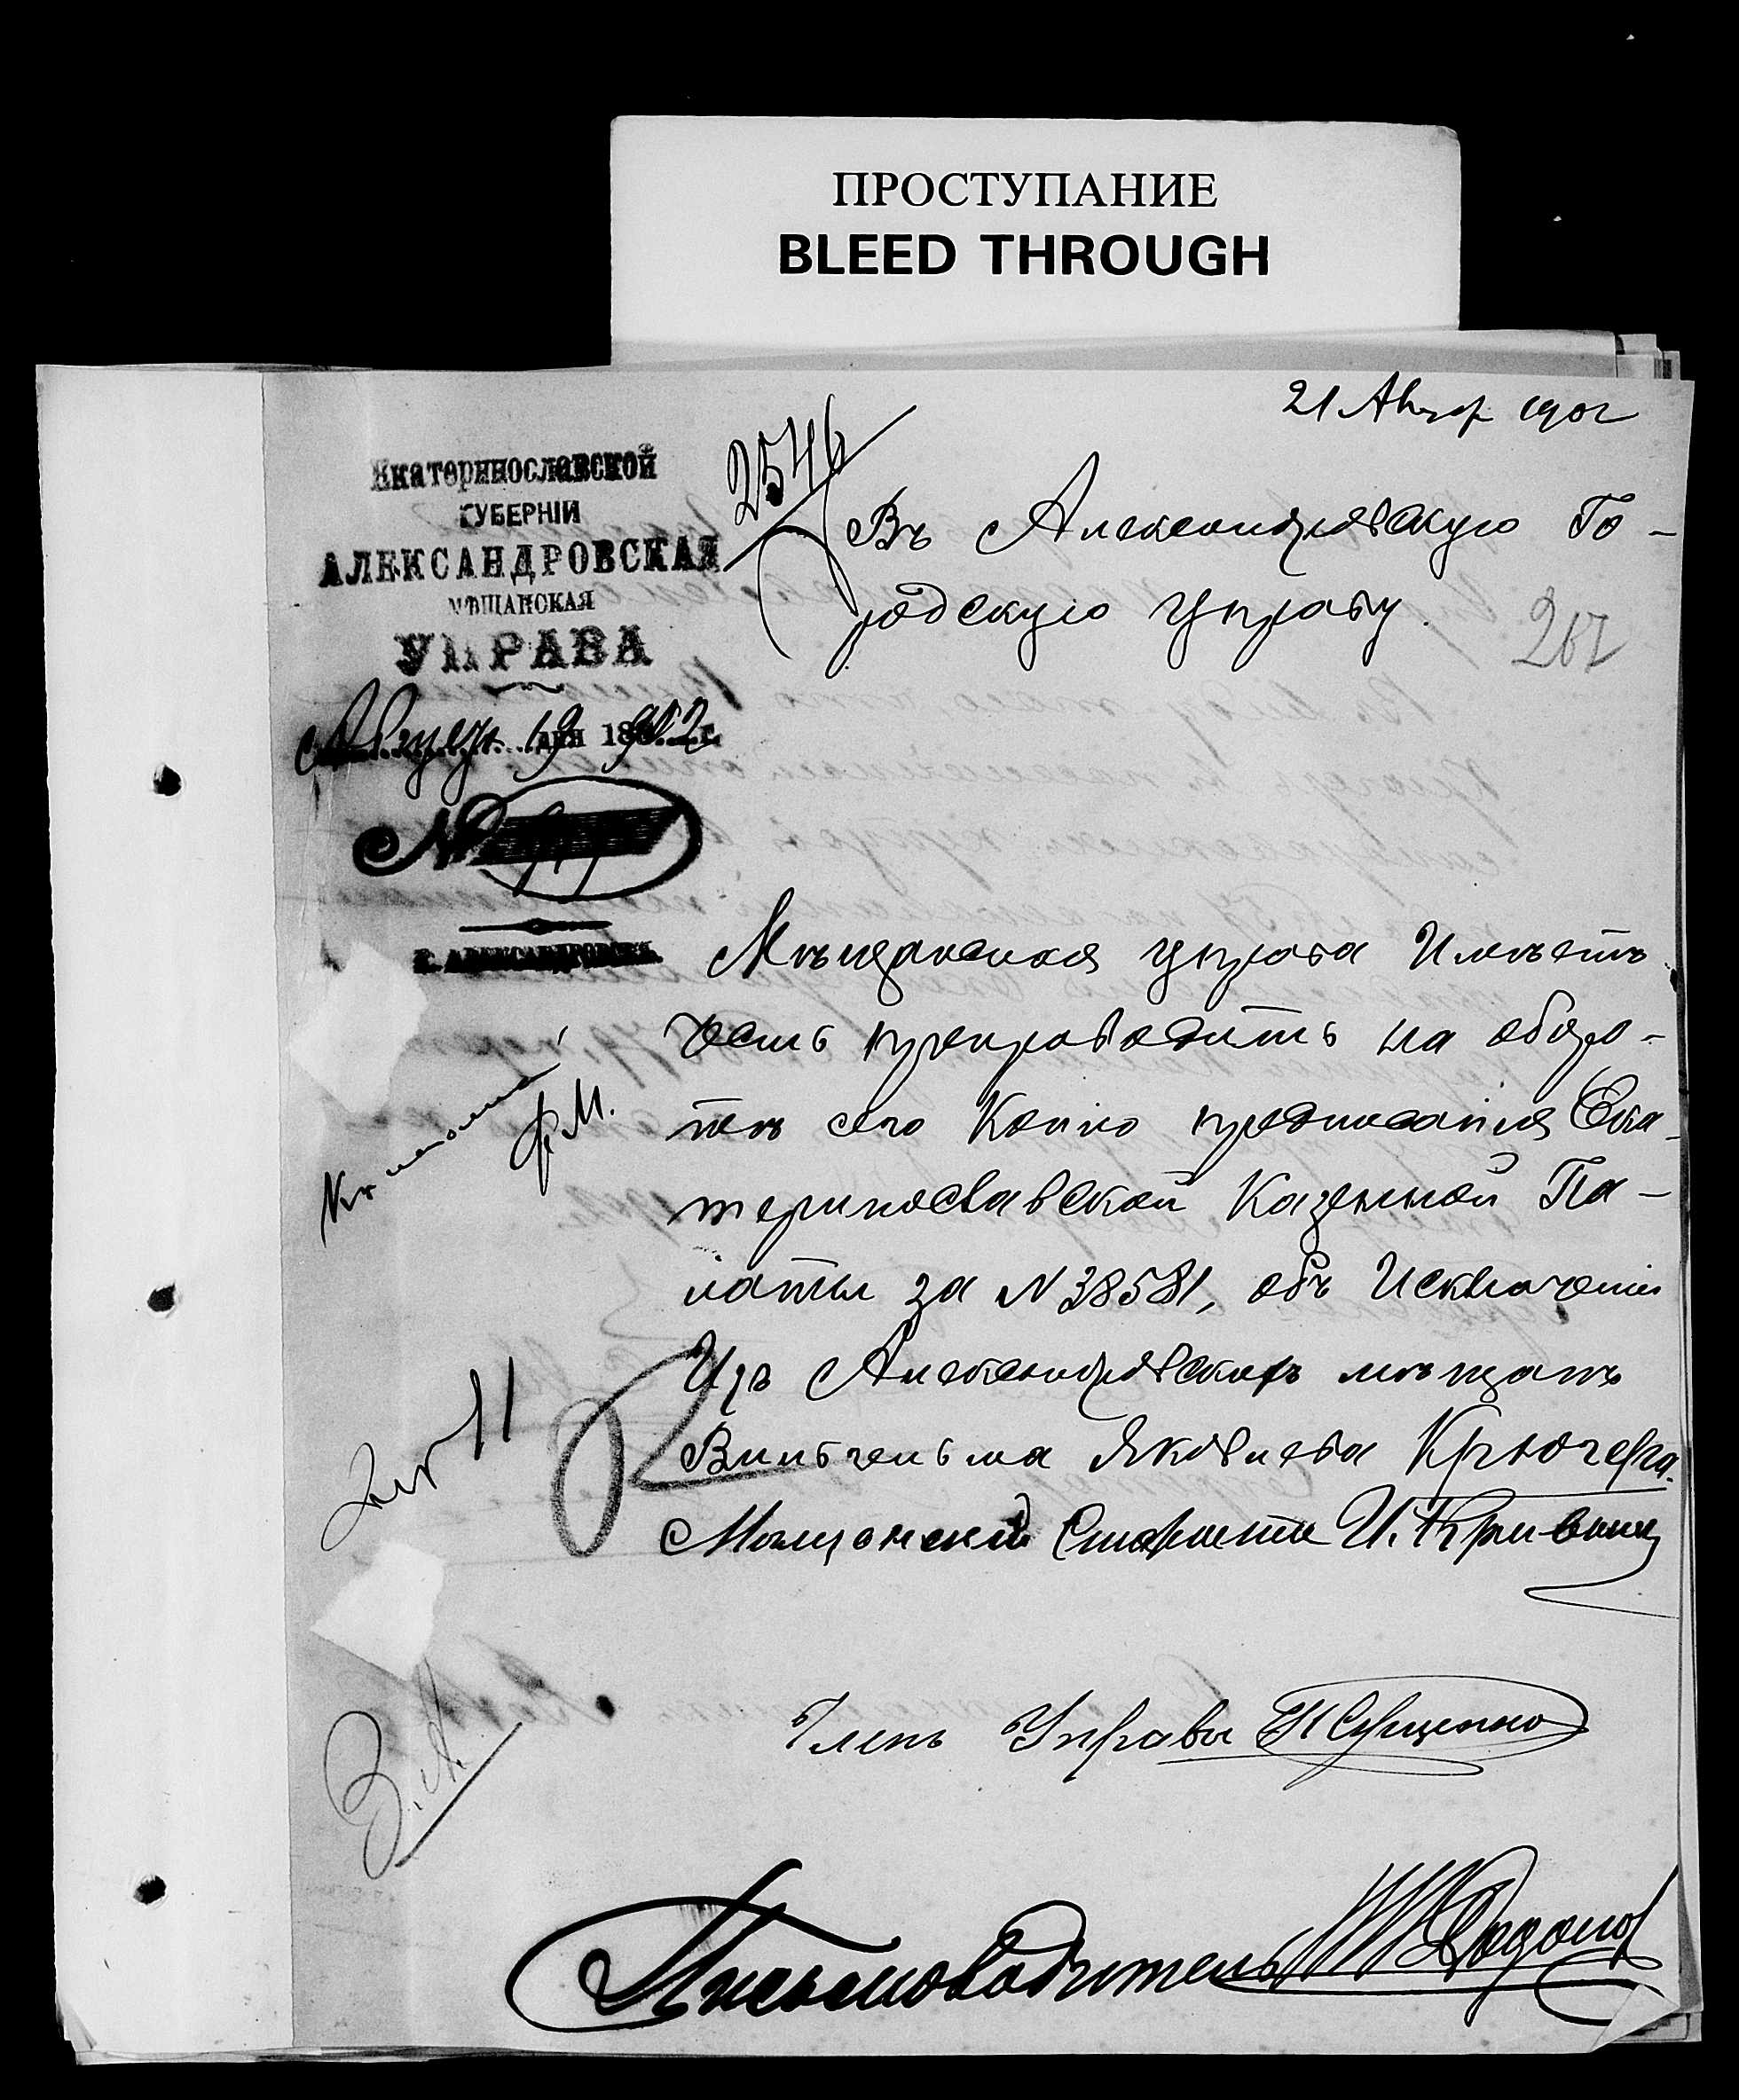 ПРОСТУПАНИЕ
BLEED THROUGH
21 Авг 1902
Екатеринославской
ГУБЕРНІИ
АЛЕКСАНДРОВСКАЯ
МѢЩАНСКАЯ
УПРАВА
19 дня 1902 г.
№
Г. АЛЕКСАНДРОВСКЪ
2546
Въ Александровскую Го-
родскую управу.
267
Мѣщанская управа Имѣетъ
честь препроводить на оборо-
тѣ сего Копію предписанія Ека-
теринославской Казенной Па-
латы за N 38581, объ Исключеніи
Изъ Александровскихъ мѣщанъ
Вильгельма Яковлева Крюгера.
Мещанский Староста И. Кривенц
Членъ Управы
Письмоводитель